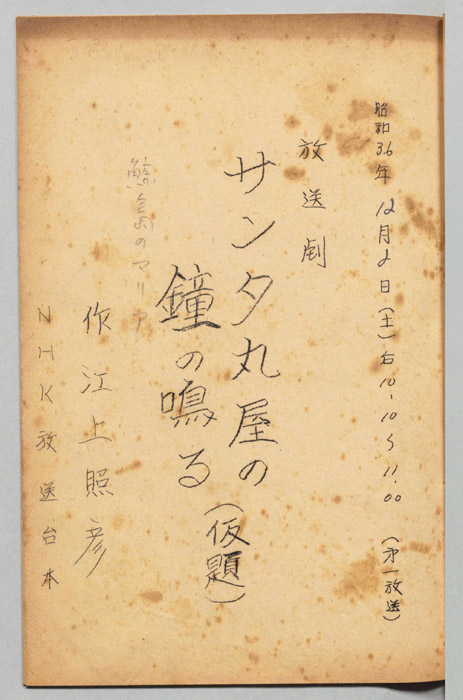 昭和36年 12月2日(土) 后10.10〜11.00 (才一放送)
放送劇
サンタ丸屋の
鐘の鳴る
(仮題)
鯨島のマリア
作 江上照彦
NHK放送台本